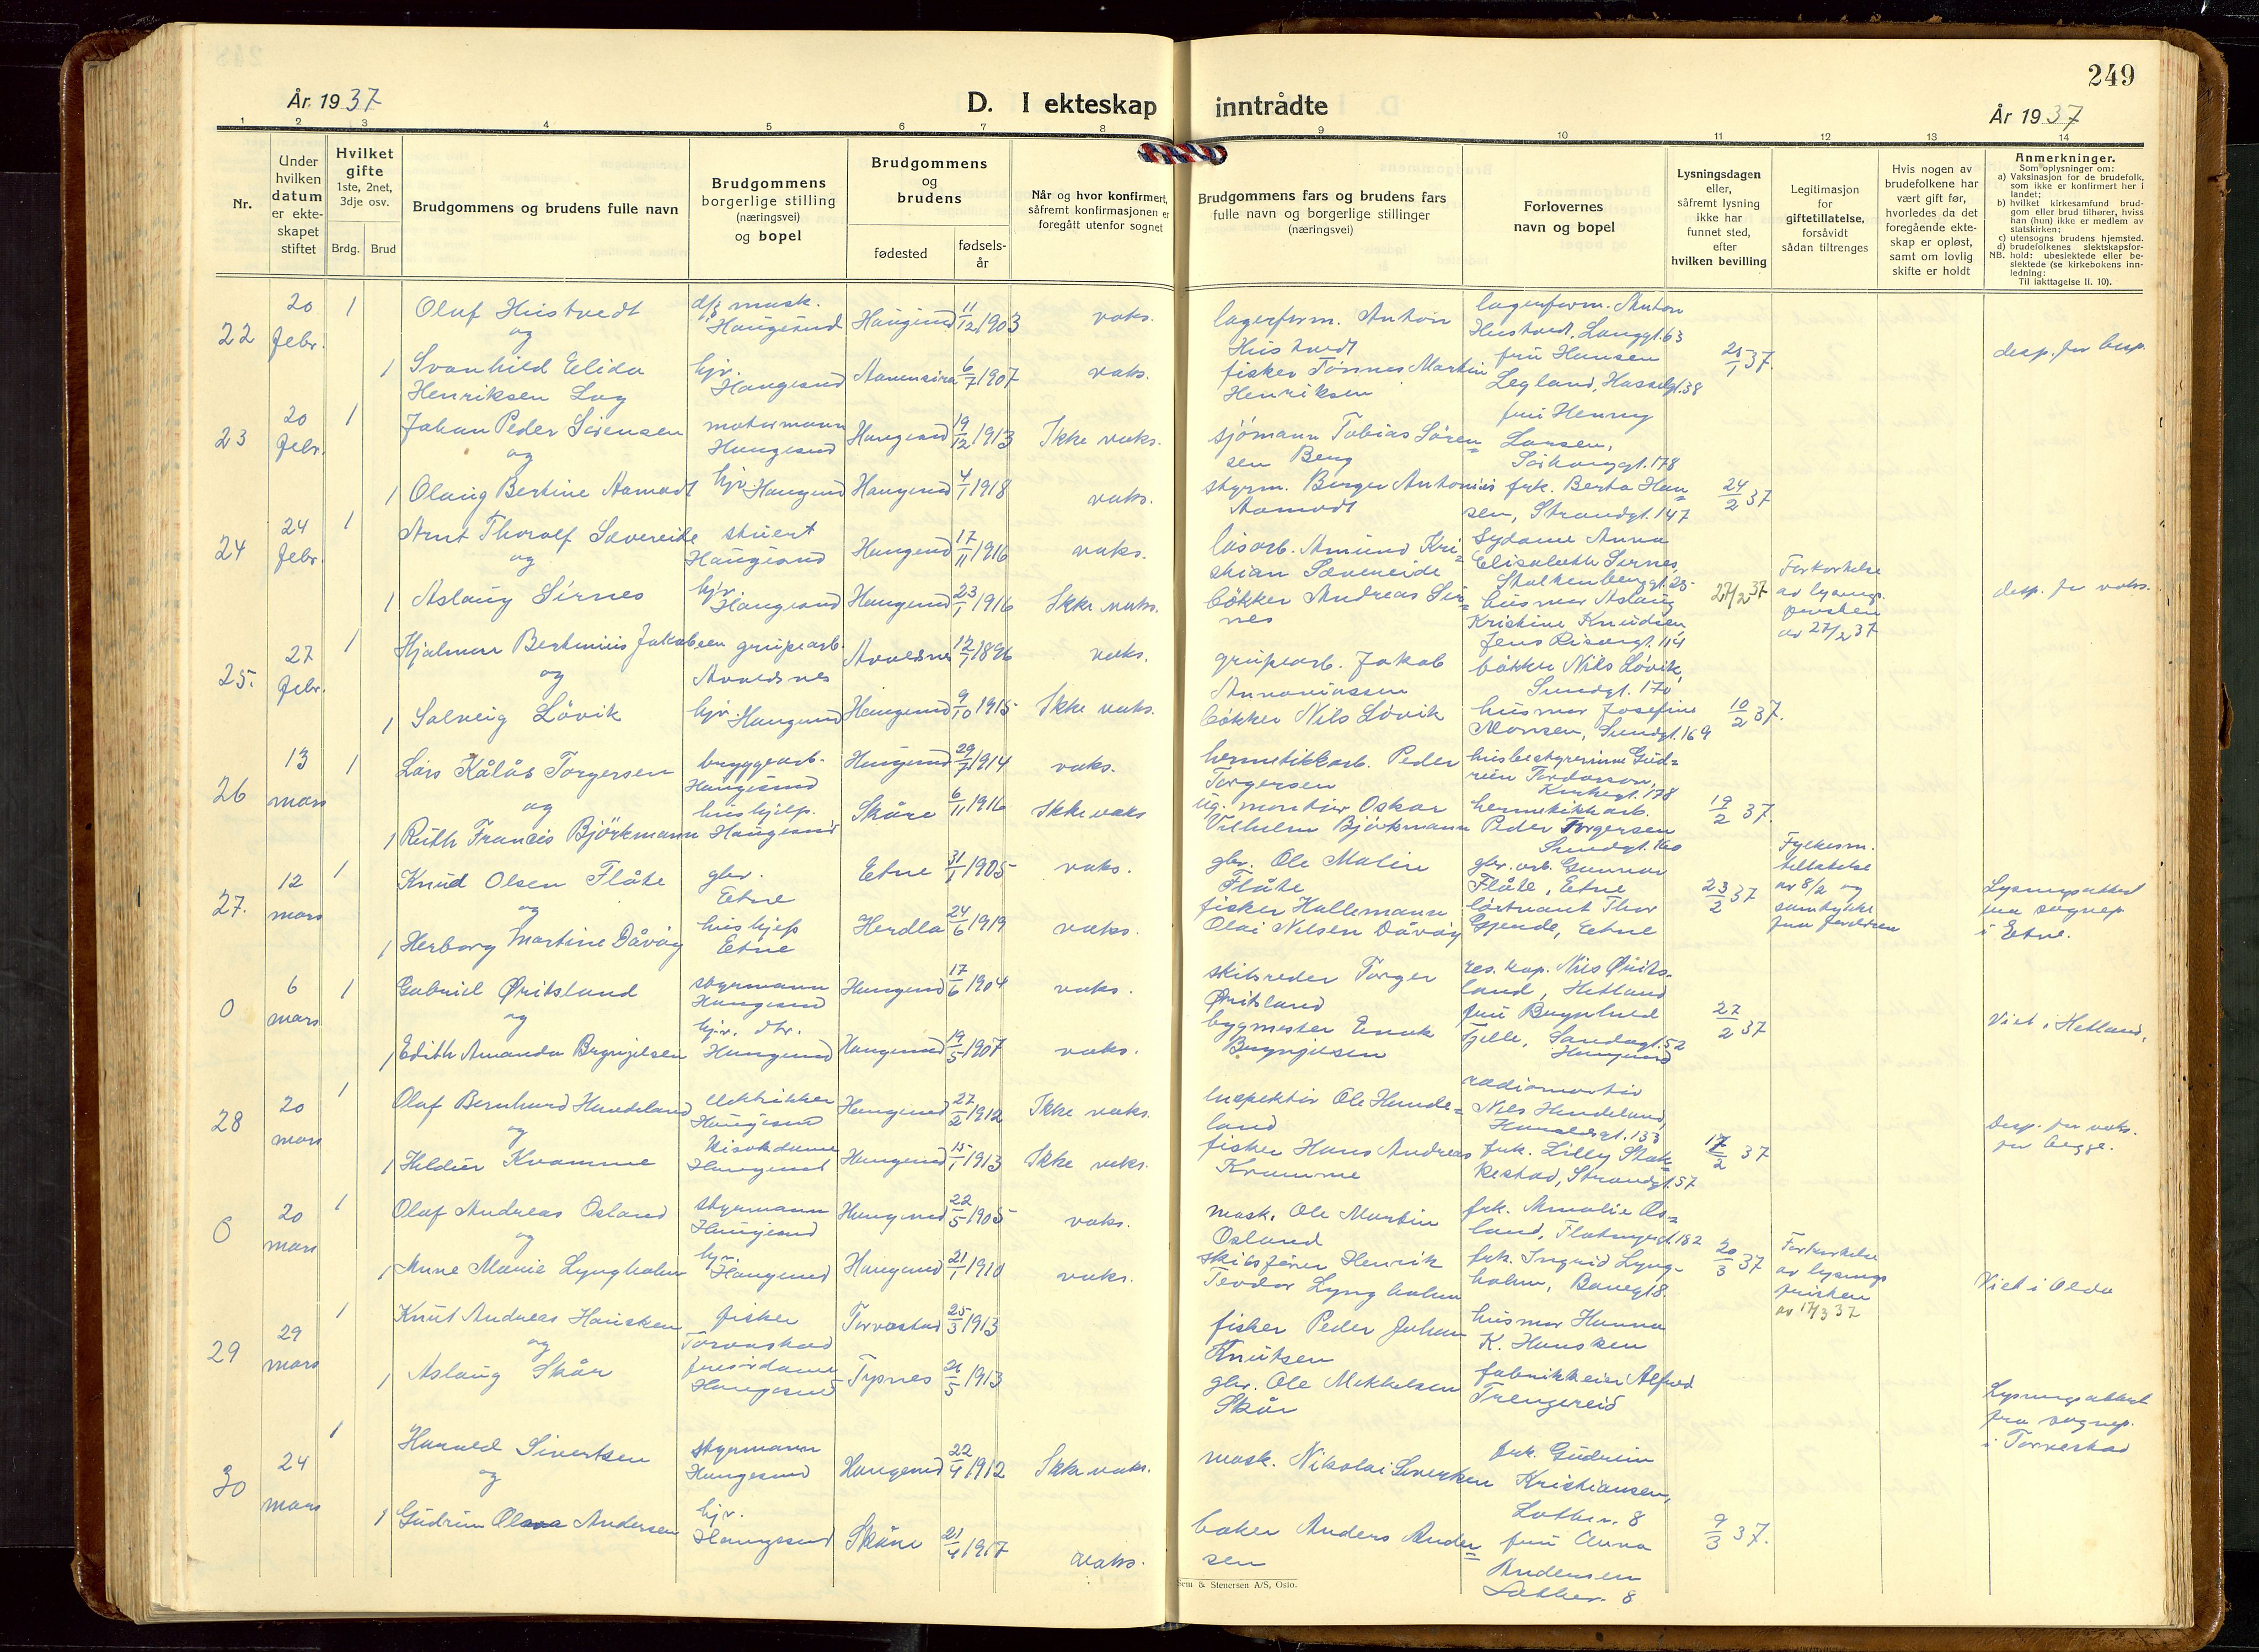 249
År 1937
D. I ekteskap inntrådte
År 1937
1 2 3 4 5 6 7 8 9 10 11 12 13 14
Nr.
Under hvilken datum er ekteskapet stiftet
Hvilket gifte 1ste, 2net, 3dje osv.
Brdg. Brud
Brudgommens og brudens fulle navn
Brudgommens borgerlige stilling (næringsvei) og bopel
Brudgommens og brudens
fødested
fødsels-år
Når og hvor konfirmert, såfremt konfirmasjonen er foregått utenfor sognet
Brudgommens fars og brudens fars fulle navn og borgerlige stillinger (næringsvei)
Forlovernes navn og bopel
Lysningsdagen eller, såfremt lysning ikke har funnet sted, efter hvilken bevilling
Legitimasjon for giftetillatelse, forsåvidt sådan tiltrenges
Hvis nogen av brudefolkene har vært gift før, hvorledes da det foregående ekteskap er opløst, samt om lovlig skifte er holdt
Anmerkninger.
Som oplysninger om:
a) Vaksinasjon for de brudefolk, som ikke er konfirmert her i landet;
b) hvilket kirkesamfund brudgom eller brud tilhører, hviss han (hun) ikke er medlem av statskirken;
c) utensogns brudens hjemsted.
d) brudefolkenes slektskapsforhold: ubeslektede eller beslektede (se kirkebokens innledning:
NB.
Til iakttagelse II. 10).
22 20 febr. 1 Olaf Hustvedt mask. Haugesund Haugesund 11/12 1903 vaks. lagerform. Anton Hustvedt lagerform. Anton Hustvedt, Langgt. 63
og
1 Svanhild Elida Henriksen Log hjv. Haugesund Aanensira 6/7 1907 vaks. fisker Tønnes Martin Henriksen fru Hansen Legland, Hasselgt. 38 37. desp. for
23 20 febr. 1 Johan Peder Sørensen motormann Haugesund Haugesund 19/12 1913 Ikke vaks. sjómann Tobias Sørensen Berg fru Henny Larsen, Sörhauggt. 178
og
1 Olaug Bertine Aamodt hjv. Haugesund Haugesund 4/1 1918 vaks. styrm. Berger Antonius Aamodt frk. Berta Hansen, Strandgt. 147 24/2 37
24 24 febr. 1 Arnt Thoralf Sævereide stuert Haugesund Haugesund 17/11 1916 vaks. løsarb. Amund Kristian Sævereide Sydame Anna Elisabeth Sirnes, Stoltenberggt. 25
og
1 Aslaug Sirnes hjv. Haugesund Haugesund 23/1 1916 Ikke vaks. bökker Andreas Sirnes husmor Aslaug Kristine Knudsen, Jens Risøegt. 114 27/2 37 Forkortelse av lysningsfristen av 27/2 37 desp. for vaks.
25. 27 febr. 1 Hjalmar Bertinius Jakobsen grupearb. Avaldsnes Avaldsnes 12/1 1896 vaks. grupearb. Jakob bökker Nils Lövik, Sundgt. 170
og
1 Solveig Lövik hjv. Haugesund Haugesund 9/10 1915 Ikke vaks. bökker Nils Lövik husmor Josefine Monsen, Sundgt. 169 10/2 37.
26 13 mars 1 Lars Kålås Torgersen bryggearb. Haugesund Haugesund 29/7 1914 vaks. hermetikkarb. Peder Torgersen husbestyrerinne Gudrun Tordasson, Kirkegt. 178
og
1 Ruth Francis Björkmann hushjelp. Haugesund Skåre 6/11 1916 Ikke vaks montør Oskar Vilhelm Björkmann hermetikkarb. Peder Torgersen Sundgt. 160 19/2 37.
27. 12 mars 1 Knud Olsen Flåte gbr. Etne Etne 31/1 1905 vaks. gbr. Ole Flåte gbr. arb. Gunnar Flåte, Etne
og
1 Herborg Martine Dåvöy hushjelp Etne Herdla 24/6 1919 vaks. fisker Hallemann Olai Nilsen Dåvöy Thor Gjende, Etne 23/2 37 Fylkesm. tillatelse av 8/2 og samtykke fra foreldrene Lysningsattest fra sognep. i Etne.
0 6 mars 1 Gabriel Øritsland styrmann Haugesund Haugesund 17/6 1904 vaks. skibsreder Torger Øritsland res. kap. Nils Øritsland, Hetland
og
1 Edith Amanda Brynjelsen hjv. dtr. Haugesund Haugesund 19/5 1907 vaks. bygmester Enok Brynjelsen fru Brynhild Fjelle, Sandagt. 52 Haugesund 27/2 37 Viet i Hetland.
28 20 mars 1 Olaf Bernhard Hundeland elektriker Haugesund Haugesund 27/2 1912 Ikke vaks. Inspektör Ole Hundeland radiomontør Nils Hundeland, Haraldsgt. 133
og
1 Kvamme kioskdame Haugesund Haugesund 15/1 1913 Ikke vaks. fisker Hans Andreas Kvamme frk. Lilly Stakkestad, Strandgt. 57 17/2 37 desp. for vaks. for begge.
0 20 mars 1 Olaf Andreas Osland styrmann Haugesund Haugesund 22/5 1905 vaks. mask. Ole Martin Osland frk. Amalie Osland, Flotmyrgt. 182
og
1 Anne Marie Lyngholm hjv. Haugesund Haugesund 21/1 1910 vaks. skibsfører Henrik Teodor Lyngholm frk. Ingrid Lyngholm, Banegt. 8. 20/3 37 Forkortelse av lysningsfristen av 17/3 37 Viet i Olda
29 29 mars 1 Knut Andreas Hausken fisker Torvastad Torvastad 25/3 1913 fisker Peder Johan Knutsen husmor Hanna K. Hausken
og
1 Aslaug Skår frisördame Haugesund Tysnes 21/5 1913 gbr. Ole Mikkelsen Skår fabrikkeier Alfred Trengereid Lysningsattest fra sognep. i Torvestad
30 24 mars 1 Harald Sivertsen styrmann Haugesund Haugesund 22/4 1912 Ikke vaks. mask. Nikolai Sivertsen frk. Gudrun Kristiansen, Lother. 8
og
1 Gudrun Andersen hjv. Haugesund Skåre 21/4 1917 vaks. baker Anders Andersen fru Anna Andersen Lother. 8 9/3 37.
Sem & Stenersen A/S, Oslo.